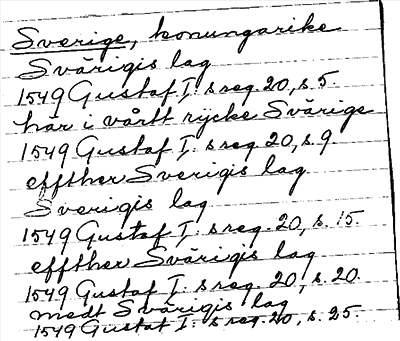 Sverige, konungarike
Svärigis lag
1549 Gustaf I: s reg. 20, s. 5.
här i vårtt rijcke Svärige
1549 Gustaf I: s reg. 20, s. 9.
effther Sverigis lag
Sverigis lag
1549 Gustaf I: s reg. 20, s. 15.
effther Svärigis lag
1549 Gustaf I: s reg. 20, s. 20.
medt Svärigis lag
1549 Gustaf I: s reg. 20, s. 25.